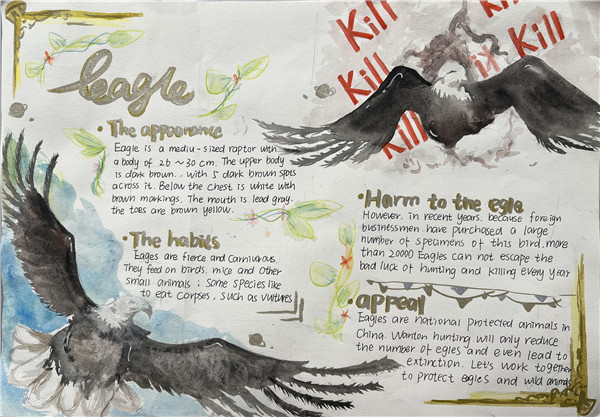 eagle
The appoorance
Eagle is a mediu-sized raptor with
a body of 26 ~ 30 cm. The upper body
is dark brown. . with 5 dark brown spots
across it. Below the chest is white with
brown markings. The mouth is lead gray.
the toes are brown yellow.
The habits
Eagles are fierce and carnivorous.
They feed on birds, mice and other
small animals ; some species like
to eat corpses, such as vultures
Kill
Kill
Kill
Kill
Kill
Harm to the egle
However, in recent years, because foreign
businessmen have purchased a large
number of specimens of this bird. more
than 20000 Eagles can not escape the
bad luck of hunting and killing every year
appeal
Eagles are national protected animals in
China. Wanton hunting will only reduce
the number of egles and even lead to
extinction. Let's work together
to protect eagles and wild animals